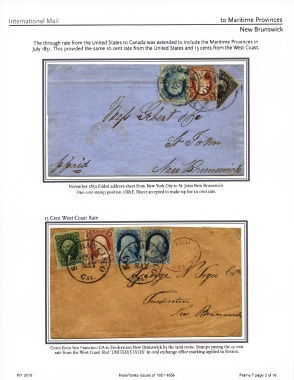 International Mail
to Maritime Provinces
New Brunswick
The through rate from the United States to Canada was extended to include the Maritime Provinces in
July 1851. This provided the same 10 cent rate from the United States and 15 cents from the West Coast.
St John
New Brunswick
November 1852 folded address sheet from New York City to St. John New Brunswick.
One cent stamp position Bisect accepted to make up the 10 cent rate.
15 Cent West Coast Rate
SAN FRANCISCO
CAL.
Fredericton
New Brunswick
Cover from San Francisco CA to Fredericton New Brunswick by the land route. Stamps paying the 15 cent
rate from the West Coast. Red "UNITED STATES" in oval exchange office marking applied in Boston.
NY 2016
Imperforate Issues of 1851-1856
Frame 7 page 3 of 16